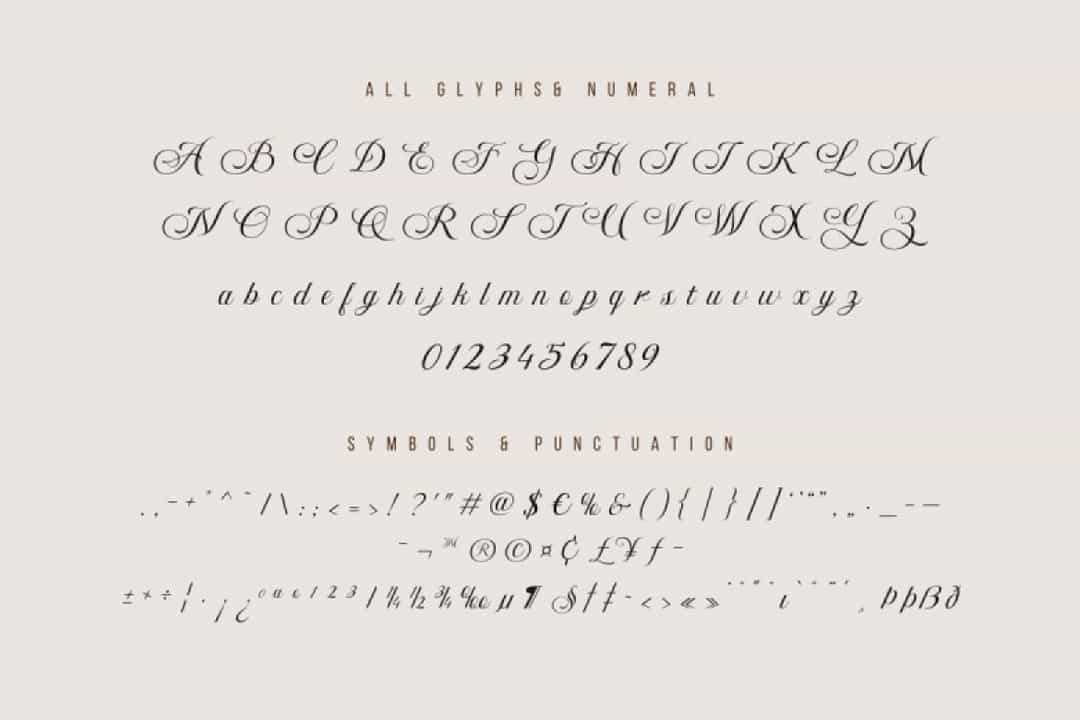 ALL GLYPHS& NUMERAL
A B C D E F G H I J K L M
N O P Q R S T U V W X Y Z
a b c d e f g h i j k l m n o p q r s t u v w x y z
0 1 2 3 4 5 6 7 8 9
SYMBOLS & PUNCTUATION
. , - + * ^ ~ / \ : ; < = > ! ? ' " # @ $ € % & ( ) { | } [ ] ‘ ’ “ ” ‚ „ · _ – —
¬ ™ ® © ¤ ¢ £ ¥ ƒ -
± × ÷ ¦ · ¡ ¿ º ª 1 2 3 / ¼ ½ ¾ ‰ µ ¶ § † ‡ - ‹ › « » ı ¸ Þ þ ß ð